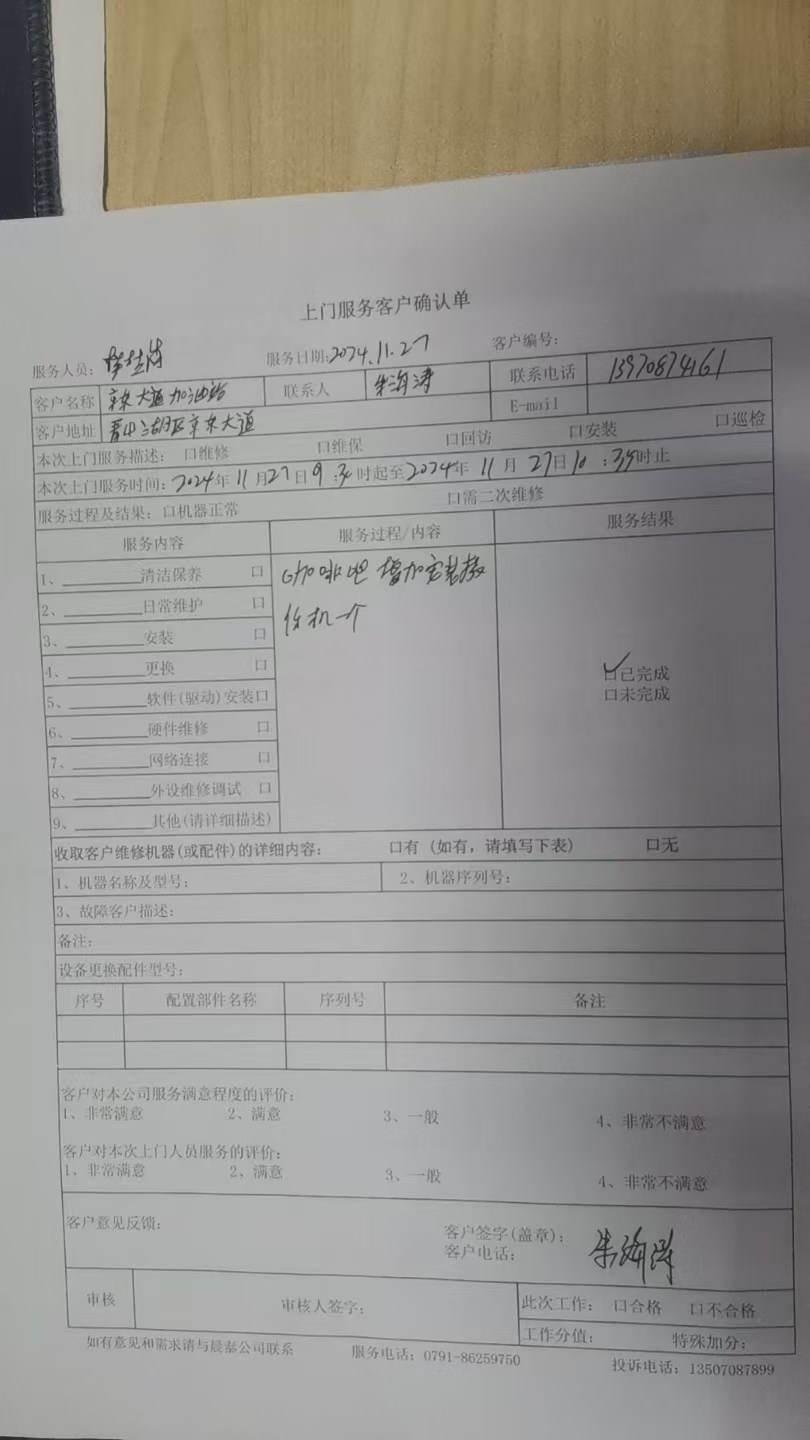 上门服务客户确认单
服务人员: 服务日期:2024.11.27 客户编号:
客户名称 京东大道加油站 联系人 朱海涛 联系电话 13970874161
客户地址 青山湖区京东大道 E-mail
本次上门服务描述: 口维修 口维保 口回访 口安装 口巡检
本次上门服务时间: 2024年 11月27日9:30时起至2024年 11月 27日10:35时止
服务过程及结果: 口机器正常 口需二次维修
服务内容 服务过程/内容 服务结果
1、________清洁保养 口
2、________日常维护 口
3、________安装 口
4、________更换 口
5、________软件(驱动)安装口
6、________硬件维修 口
7、________网络连接 口
8、________外设维修调试 口
9、________其他(请详细描述)
咖啡吧 增加安装
机一个
☑已完成
口未完成
收取客户维修机器(或配件)的详细内容: 口有 (如有，请填写下表) 口无
1、机器名称及型号: 2、机器序列号:
3、故障客户描述:
备注:
设备更换配件型号:
序号 配置部件名称 序列号 备注
客户对本公司服务满意程度的评价:
1、非常满意 2、满意 3、一般 4、非常不满意
客户对本次上门人员服务的评价:
1、非常满意 2、满意 3、一般 4、非常不满意
客户意见反馈:
客户签字(盖章): 朱海涛
客户电话:
审核 审核人签字: 此次工作: 口合格 口不合格
工作分值: 特殊加分:
如有意见和需求请与晨泰公司联系 服务电话: 0791-86259750 投诉电话: 13507087899